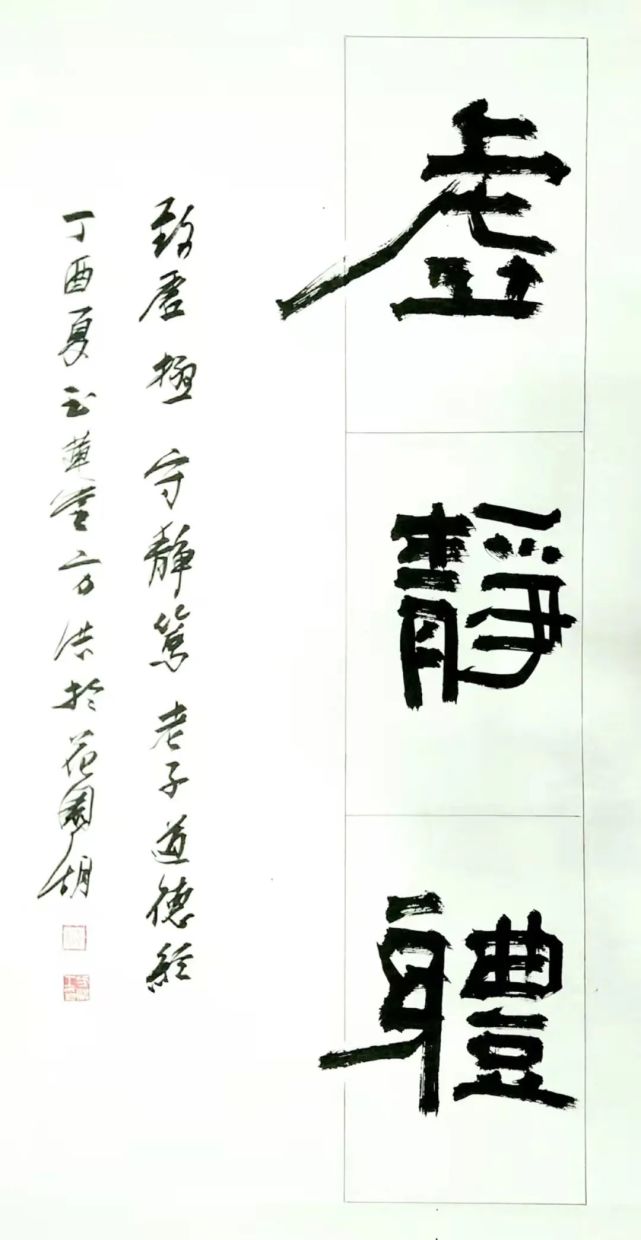 虚
靜
軆
致虚極 守靜篤 老子道德經
丁酉夏玉蓮方洪於花園胡